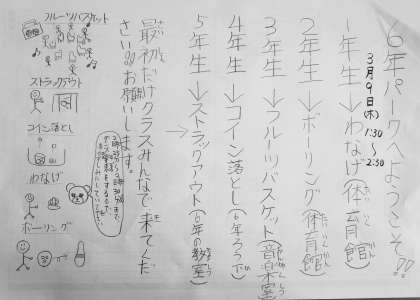 6年パークへようこそ!!
3月9日(木)
1:30
〜
2:30
1年生→わなげ(体育館)
2年生→ボーリング(体育館)
3年生→フルーツバスケット(音楽室)
4年生→コイン落とし(6年ろうか)
5年生→ストラックアウト(6年の教室)
最初だけクラスみんなで来てくだ
さい!!お願いします。
フルーツバスケット
ストラックアウト
コイン落とし
わなげ
ボーリング